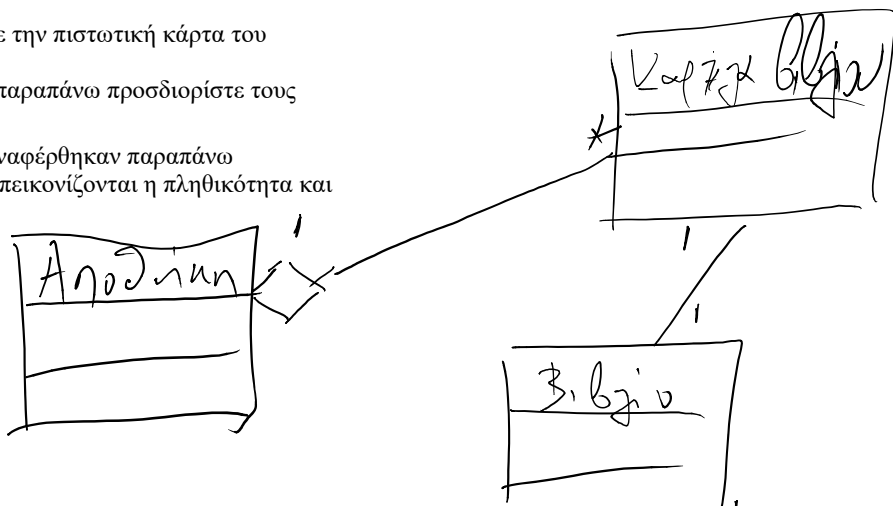 ε την πιστωτική κάρτα του
παραπάνω προσδιορίστε τους
ναφέρθηκαν παραπάνω
πεικονίζονται η πληθικότητα και
Καρτέλα βιβλίου
*
1
Αποθήκη
1
1
Βιβλίο